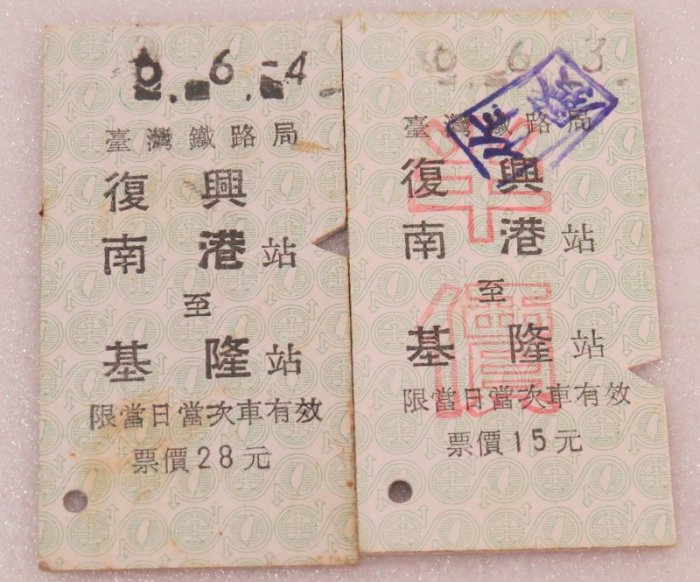 6.-4
臺灣鐵路局
復興
南港站
至
基隆站
限當日當次車有效
票價28元
6. 3
臺灣鐵路局
復興
南港站
至
基隆站
限當日當次車有效
票價15元
半價